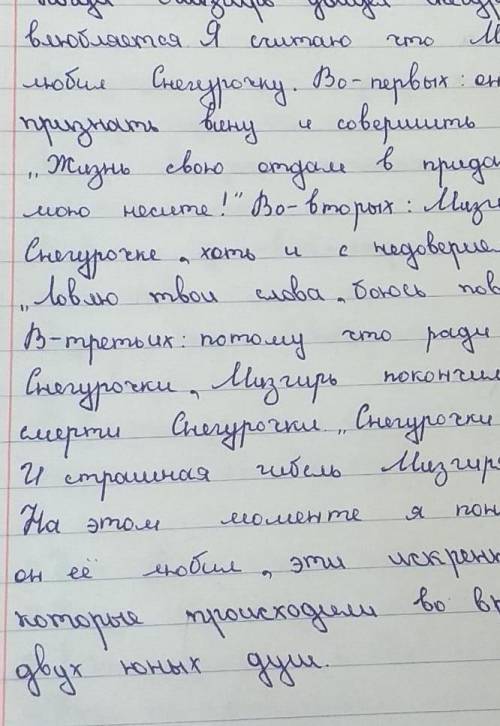 влюбляется. Я считаю что М
любил Снегурочку. Во-первых: он
признать вину и совершить
„Жизнь свою отдам в прида
мою несите!" Во-вторых: Мизг
Снегурочке, хоть и с недоверие
„Ловлю твои слова, боюсь пов
В-третьих: потому что ради
Снегурочки, Мизгирь покончил
смерти Снегурочки „Снегурочки
И страшная гибель Мизгир
На этом моменте я пон
он её любил, эти искрен
которые происходили во вн
двух юных душ.